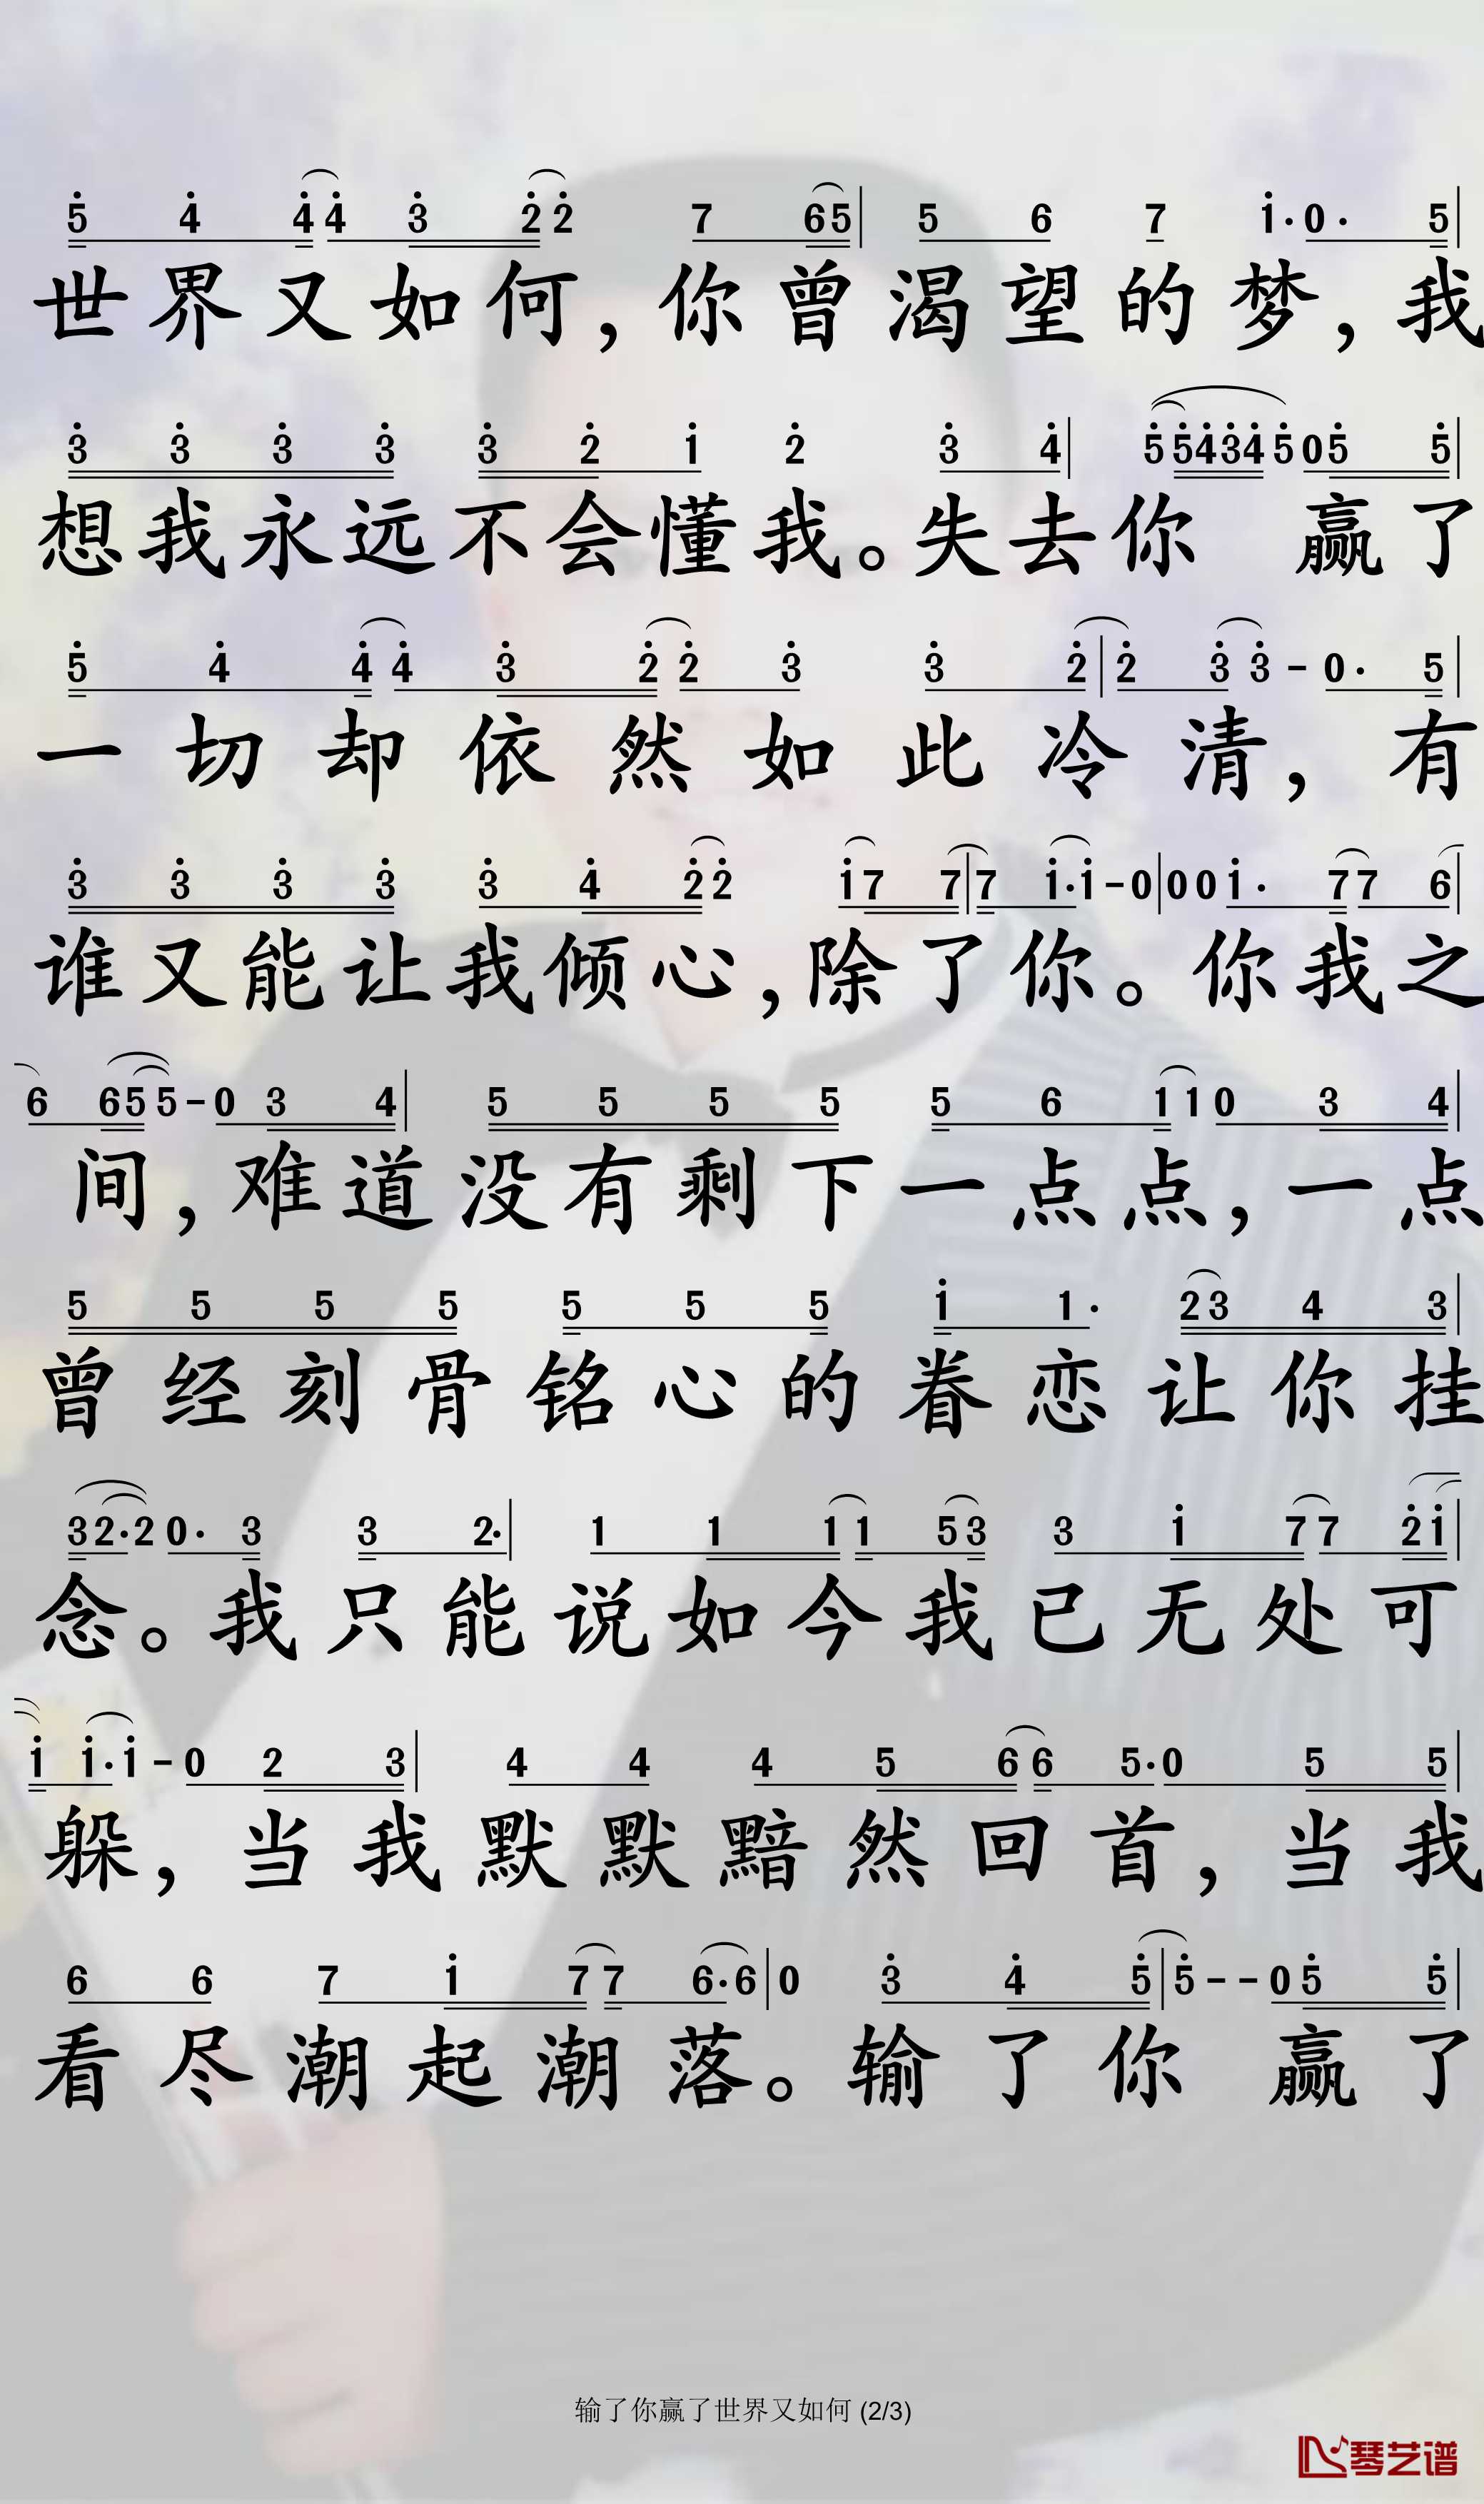 5̇ 4̇ 4̇ 4̇ 3̇ 2̇ 2̇ 7 6 5 | 5 6 7 1̇· 0· 5 |
世界又如何，你曾渴望的梦，我
3̇ 3̇ 3̇ 3̇ 3̇ 2̇ 1̇ 2̇ 3̇ 4̇ | 5̇ 5̇ 4̇ 3̇ 4̇ 5̇ 0 5̇ 5̇ |
想我永远不会懂我。失去你 赢了
5̇ 4̇ 4̇ 4̇ 3̇ 2̇ 2̇ 3̇ 3̇ 2̇ | 2̇ 3̇ 3̇ - 0· 5̇ |
一切却依然如此冷清，有
3̇ 3̇ 3̇ 3̇ 3̇ 4̇ 2̇ 2̇ 1̇ 7 7 | 7 1̇· 1̇ - 0 | 0 0 1̇· 7 7 6 |
谁又能让我倾心，除了你。你我之
6 6 5 5 - 0 3 4 | 5 5 5 5 5 6 1 1 0 3 4 |
间，难道没有剩下一点点，一点
5 5 5 5 5 5 5 1̇ 1· 2 3 4 3 |
曾经刻骨铭心的眷恋让你挂
3 2· 2 0· 3 3 2· | 1 1 1 1 5 3 3 1̇ 7 7 2̇ 1̇ |
念。我只能说如今我已无处可
1̇ 1̇· 1̇ - 0 2 3 | 4 4 4 5 6 6 5· 0 5 5 |
躲，当我默默黯然回首，当我
6 6 7 1̇ 7 7 6· 6 | 0 3̇ 4̇ 5̇ | 5̇ - - 0 5̇ 5̇ |
看尽潮起潮落。输了你 赢了
输了你赢了世界又如何 (2/3)
琴艺谱